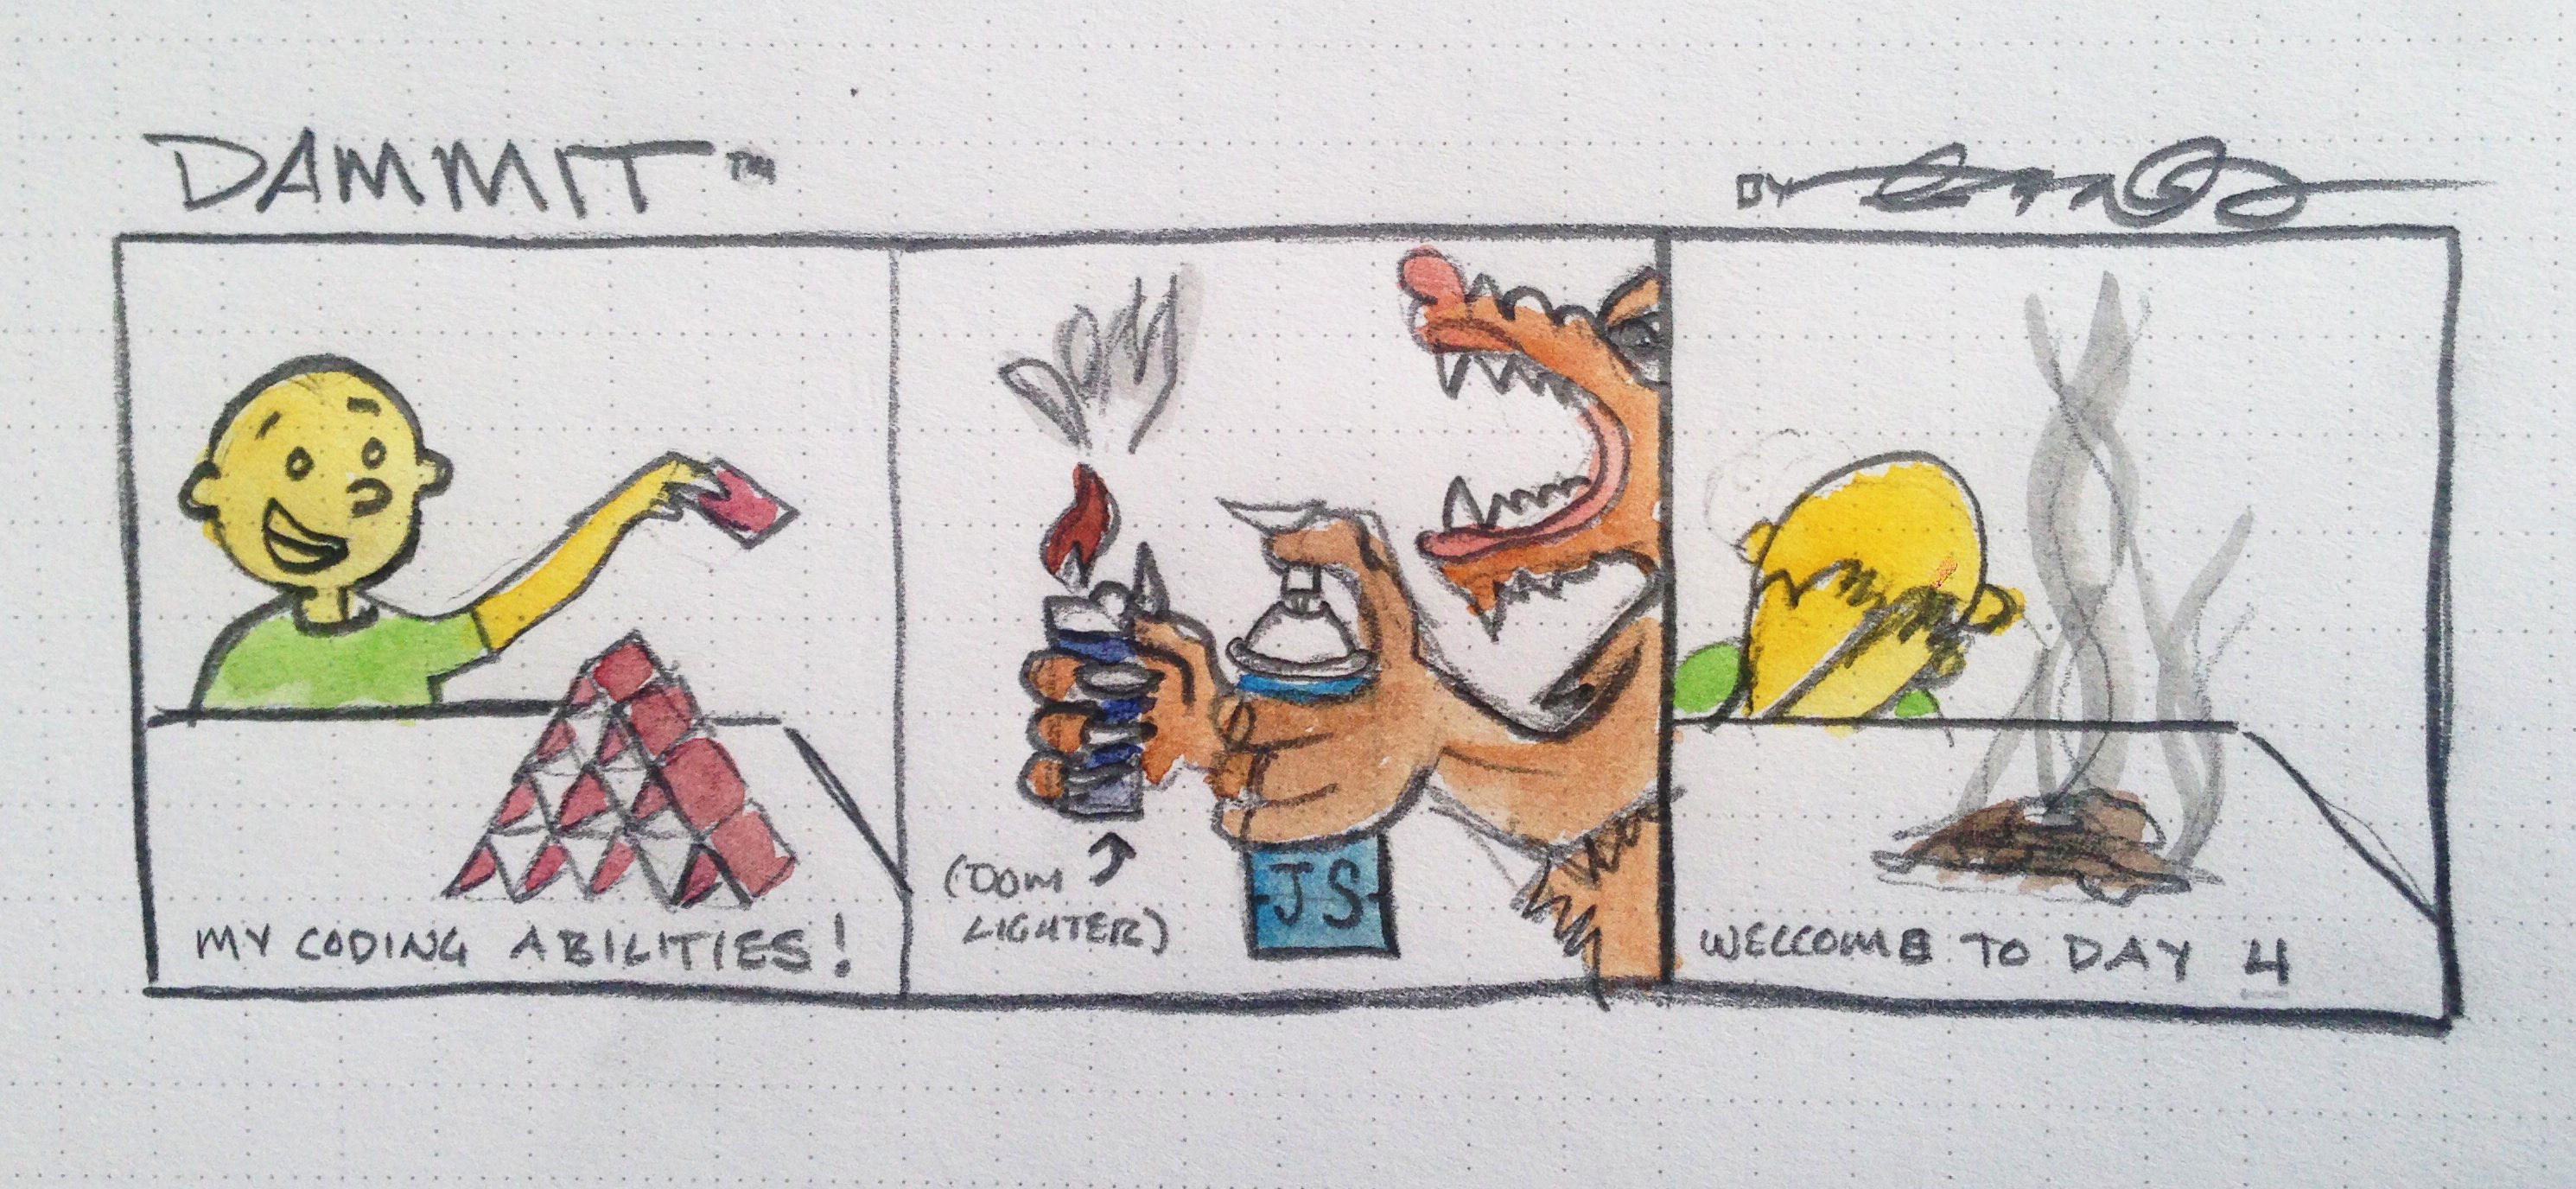 DAMMIT™
BY
MY CODING ABILITIES!
DOM
(DOM
LIGHTER)
JS
WELCOME TO DAY 4